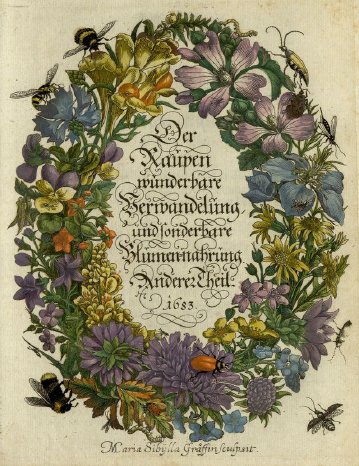 Der
Raupen
wunderbare
Verwandelung,
und sonderbare
Blumennahrung
Anderer Theil.
1683
Maria Sibylla Gräffin sculpsit.